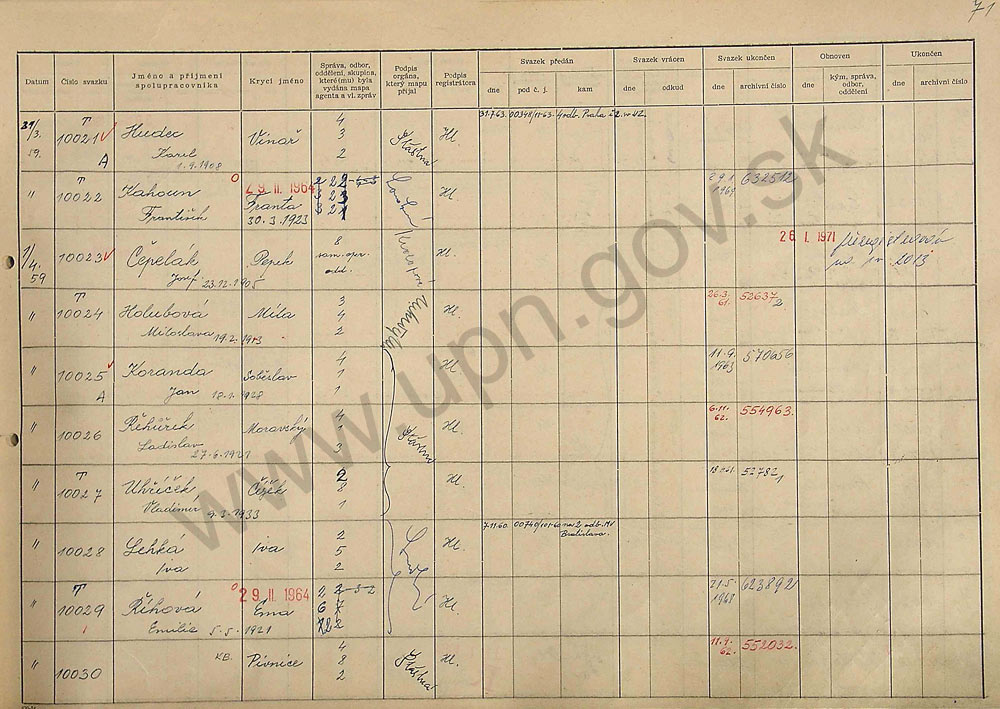 71
Datum
Číslo svazku
Jméno a příjmení spolupracovníka
Krycí jméno
Správa, odbor, oddělení, skupina, které(mu) byla vydána mapa agenta a vl. zpráv
Podpis orgána, který mapu přijal
Podpis registrátora
Svazek předán
dne
pod č. j.
kam
Svazek vrácen
dne
odkud
Svazek ukončen
dne
archivní číslo
Obnoven
dne
kým, správa, odbor, oddělení
Ukončen
dne
archivní číslo
31/3. 59.
T 10021 A
Hudec Karel 1.9.1908
Vinař
4 3 2
Šťastná
Hl.
31.7.63.
4 odb. Praha
"
T 10022
Kahoun František
29 II. 1964
Franta 30.3.1923
Hl.
1964
632512
1/4. 59
10023
Čepelák Josef 23.12.1905
Pepek
8 sam. oper. odd.
Hl.
26. I. 1971
2013
"
T 10024
Holubová Miloslava 19.2.1913
Míla
3 4 2
Hl.
26.3. 61.
52637/2
"
10025 A
Koranda Jan
Soběslav
4 1 1
Hl.
11.9. 1963
570656
"
10026
Řehůřek Ladislav 27.6.1921
Moravský
4 1 3
Šťastná
Hl.
6.11. 62.
554963.
"
T 10027
Uhříček Vladimír 9.3.1933
Čížek
2 8 1
Hl.
52782/1
"
10028
Lehká Iva
Iva
2 5 2
Hl.
7.11.60.
2 odb. MV Bratislava.
"
T 10029
Říhová Emilie 5.5.1921
29 II 1964
Ema
Hl.
21.5. 1968
623892
"
10030
KB.
Pivnice
4 8 2
Šťastná
Hl.
11.9. 62.
552032.
www.upn.gov.sk